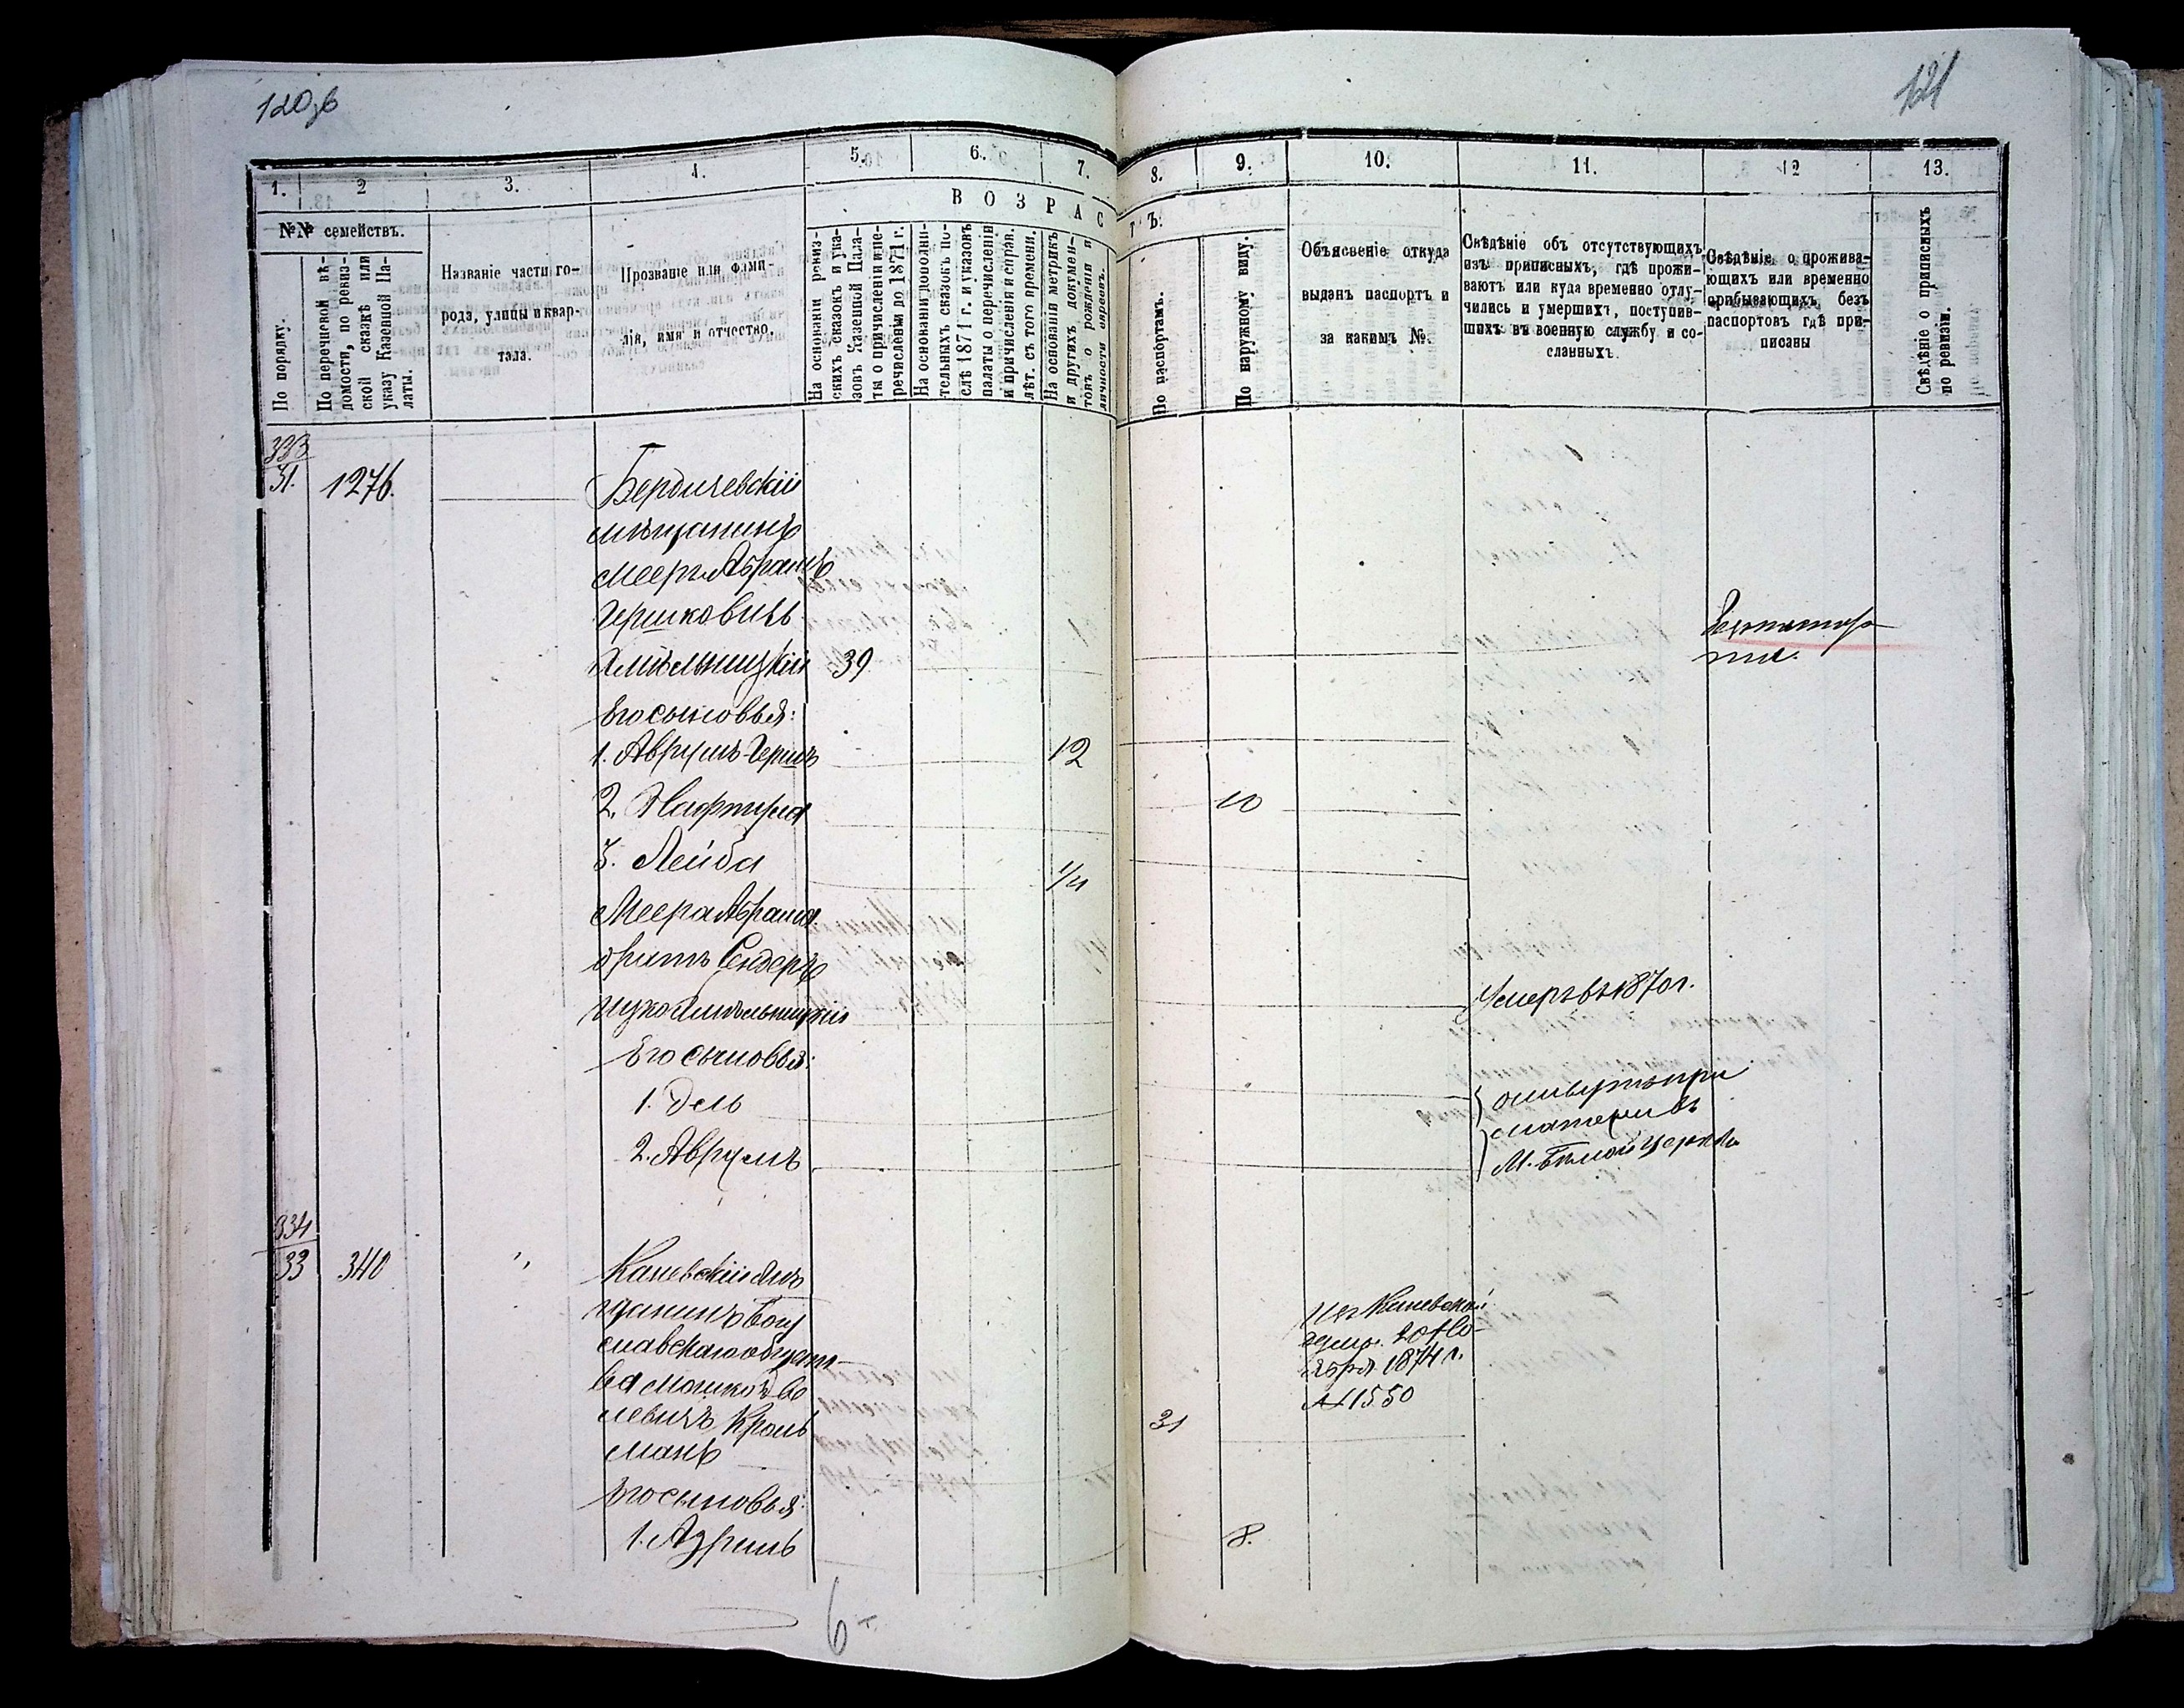 120зв
121
1.
2
3.
4.
5.
6.
7.
8.
9.
10.
11.
12
13.
№№ семействъ.
По порядку.
По перечневой вѣ-
домости, по ревиз-
ской сказкѣ или
указу Казенной Па-
латы.
Названіе части го-
рода, улицы и квар-
тала.
Прозваніе или фами-
лія, имя и отчество.
ВОЗРАСТЪ.
На основаніи ревиз-
скихъ сказокъ и ука-
зовъ Казенной Пала-
ты о причисленіи и пе-
речисленіи до 1871 г.
На основаніи дополни-
тельныхъ сказокъ по-
слѣ 1871 г. и указовъ
палаты о перечисленіи
и причисленіи и справ.
лѣт. съ того времени.
На основаніи метрикъ
и другихъ докумен-
товъ о рожденіи и
личности евреевъ.
По паспортамъ.
По наружному виду.
Объясненіе откуда
выданъ паспортъ и
за какимъ №.
Свѣдѣніе объ отсутствующихъ
изъ приписныхъ, гдѣ прожи-
ваютъ или куда временно отлу-
чились и умершихъ, поступив-
шихъ въ военную службу и со-
сланныхъ.
Свѣдѣніе о прожива-
ющихъ или временно
прибывающихъ безъ
паспортовъ гдѣ при-
писаны
Свѣдѣніе о приписныхъ
по ревизіи.
333
31.
1276.
Бердичевскій
мѣщанинъ
Мееръ Абрамъ
Гершковичъ
Хмѣльницкій 39
Его сыновья:
1. Аврумъ-Гершъ 12
2. Нафтула 10
3. Лейба 1/4
Меера Абрама
братъ Сендеръ
Ицко Хмѣльницкій Умеръ въ 1870 г.
Его сыновья:
1. Дель
2. Аврумъ
при
матери въ
М. Бѣлой Церкви
334
33
340
Каневскій мѣ
щанинъ Богу
славскаго общест-
ва Мошко
левичъ Кроль
манъ 31
Изъ Каневской
думы 20 Но-
ября 1874 г.
№ 1550
Его сыновья:
1. Азриль 8.
6